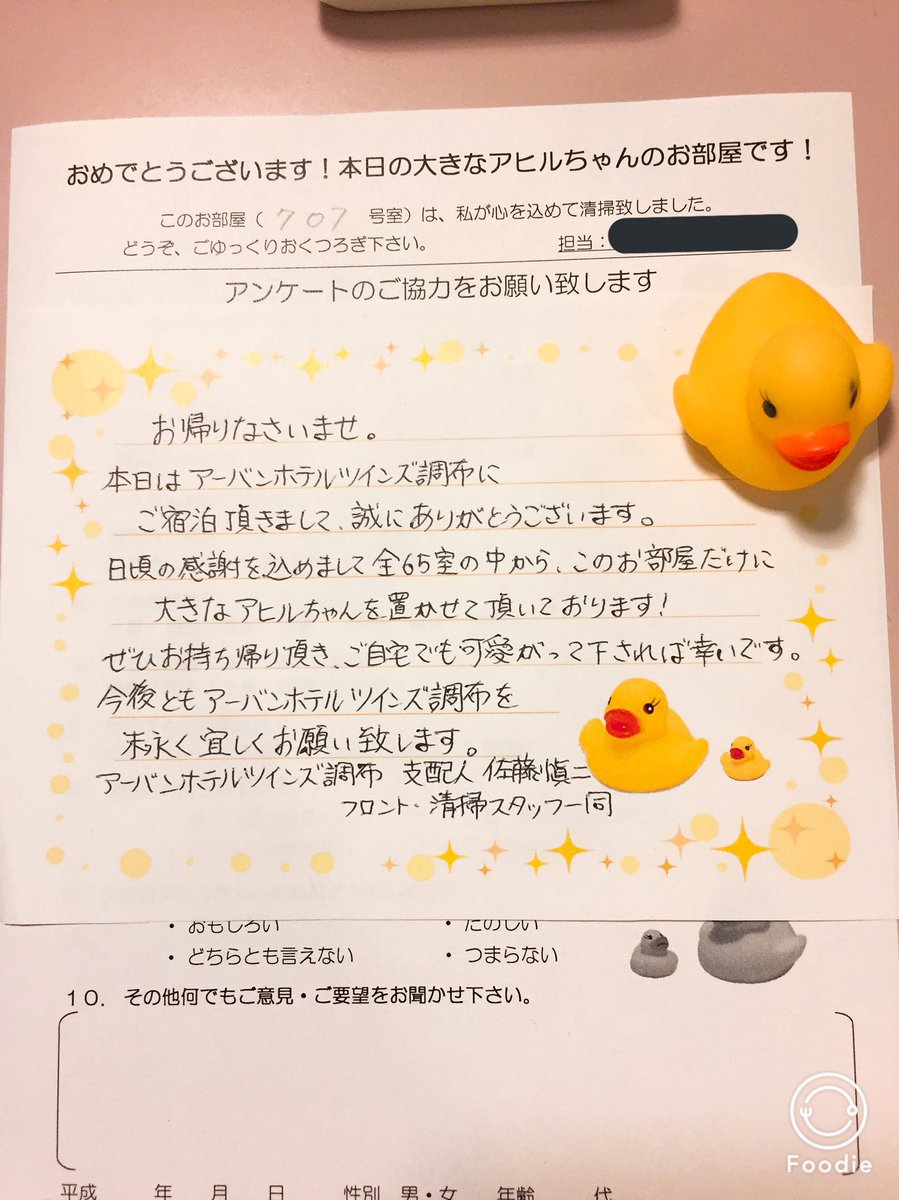 おめでとうございます！本日の大きなアヒルちゃんのお部屋です！
このお部屋（ 707 号室）は、私が心を込めて清掃致しました。
どうぞ、ごゆっくりおくつろぎ下さい。 担当：
アンケートのご協力をお願い致します
お帰りなさいませ。
本日はアーバンホテルツインズ調布に
ご宿泊頂きまして、誠にありがとうございます。
日頃の感謝を込めまして全65室の中から、このお部屋だけに
大きなアヒルちゃんを置かせて頂いております！
ぜひお持ち帰り頂き、ご自宅でも可愛がって下されば幸いです。
今後ともアーバンホテルツインズ調布を
末永く宜しくお願い致します。
アーバンホテルツインズ調布 支配人 佐藤慎二
フロント・清掃スタッフ一同
・ おもしろい ・ たのしい
・ どちらとも言えない ・ つまらない
１０． その他何でもご意見・ご要望をお聞かせ下さい。
平成 年 月 日 性別 男・女 年齢 代
Foodie